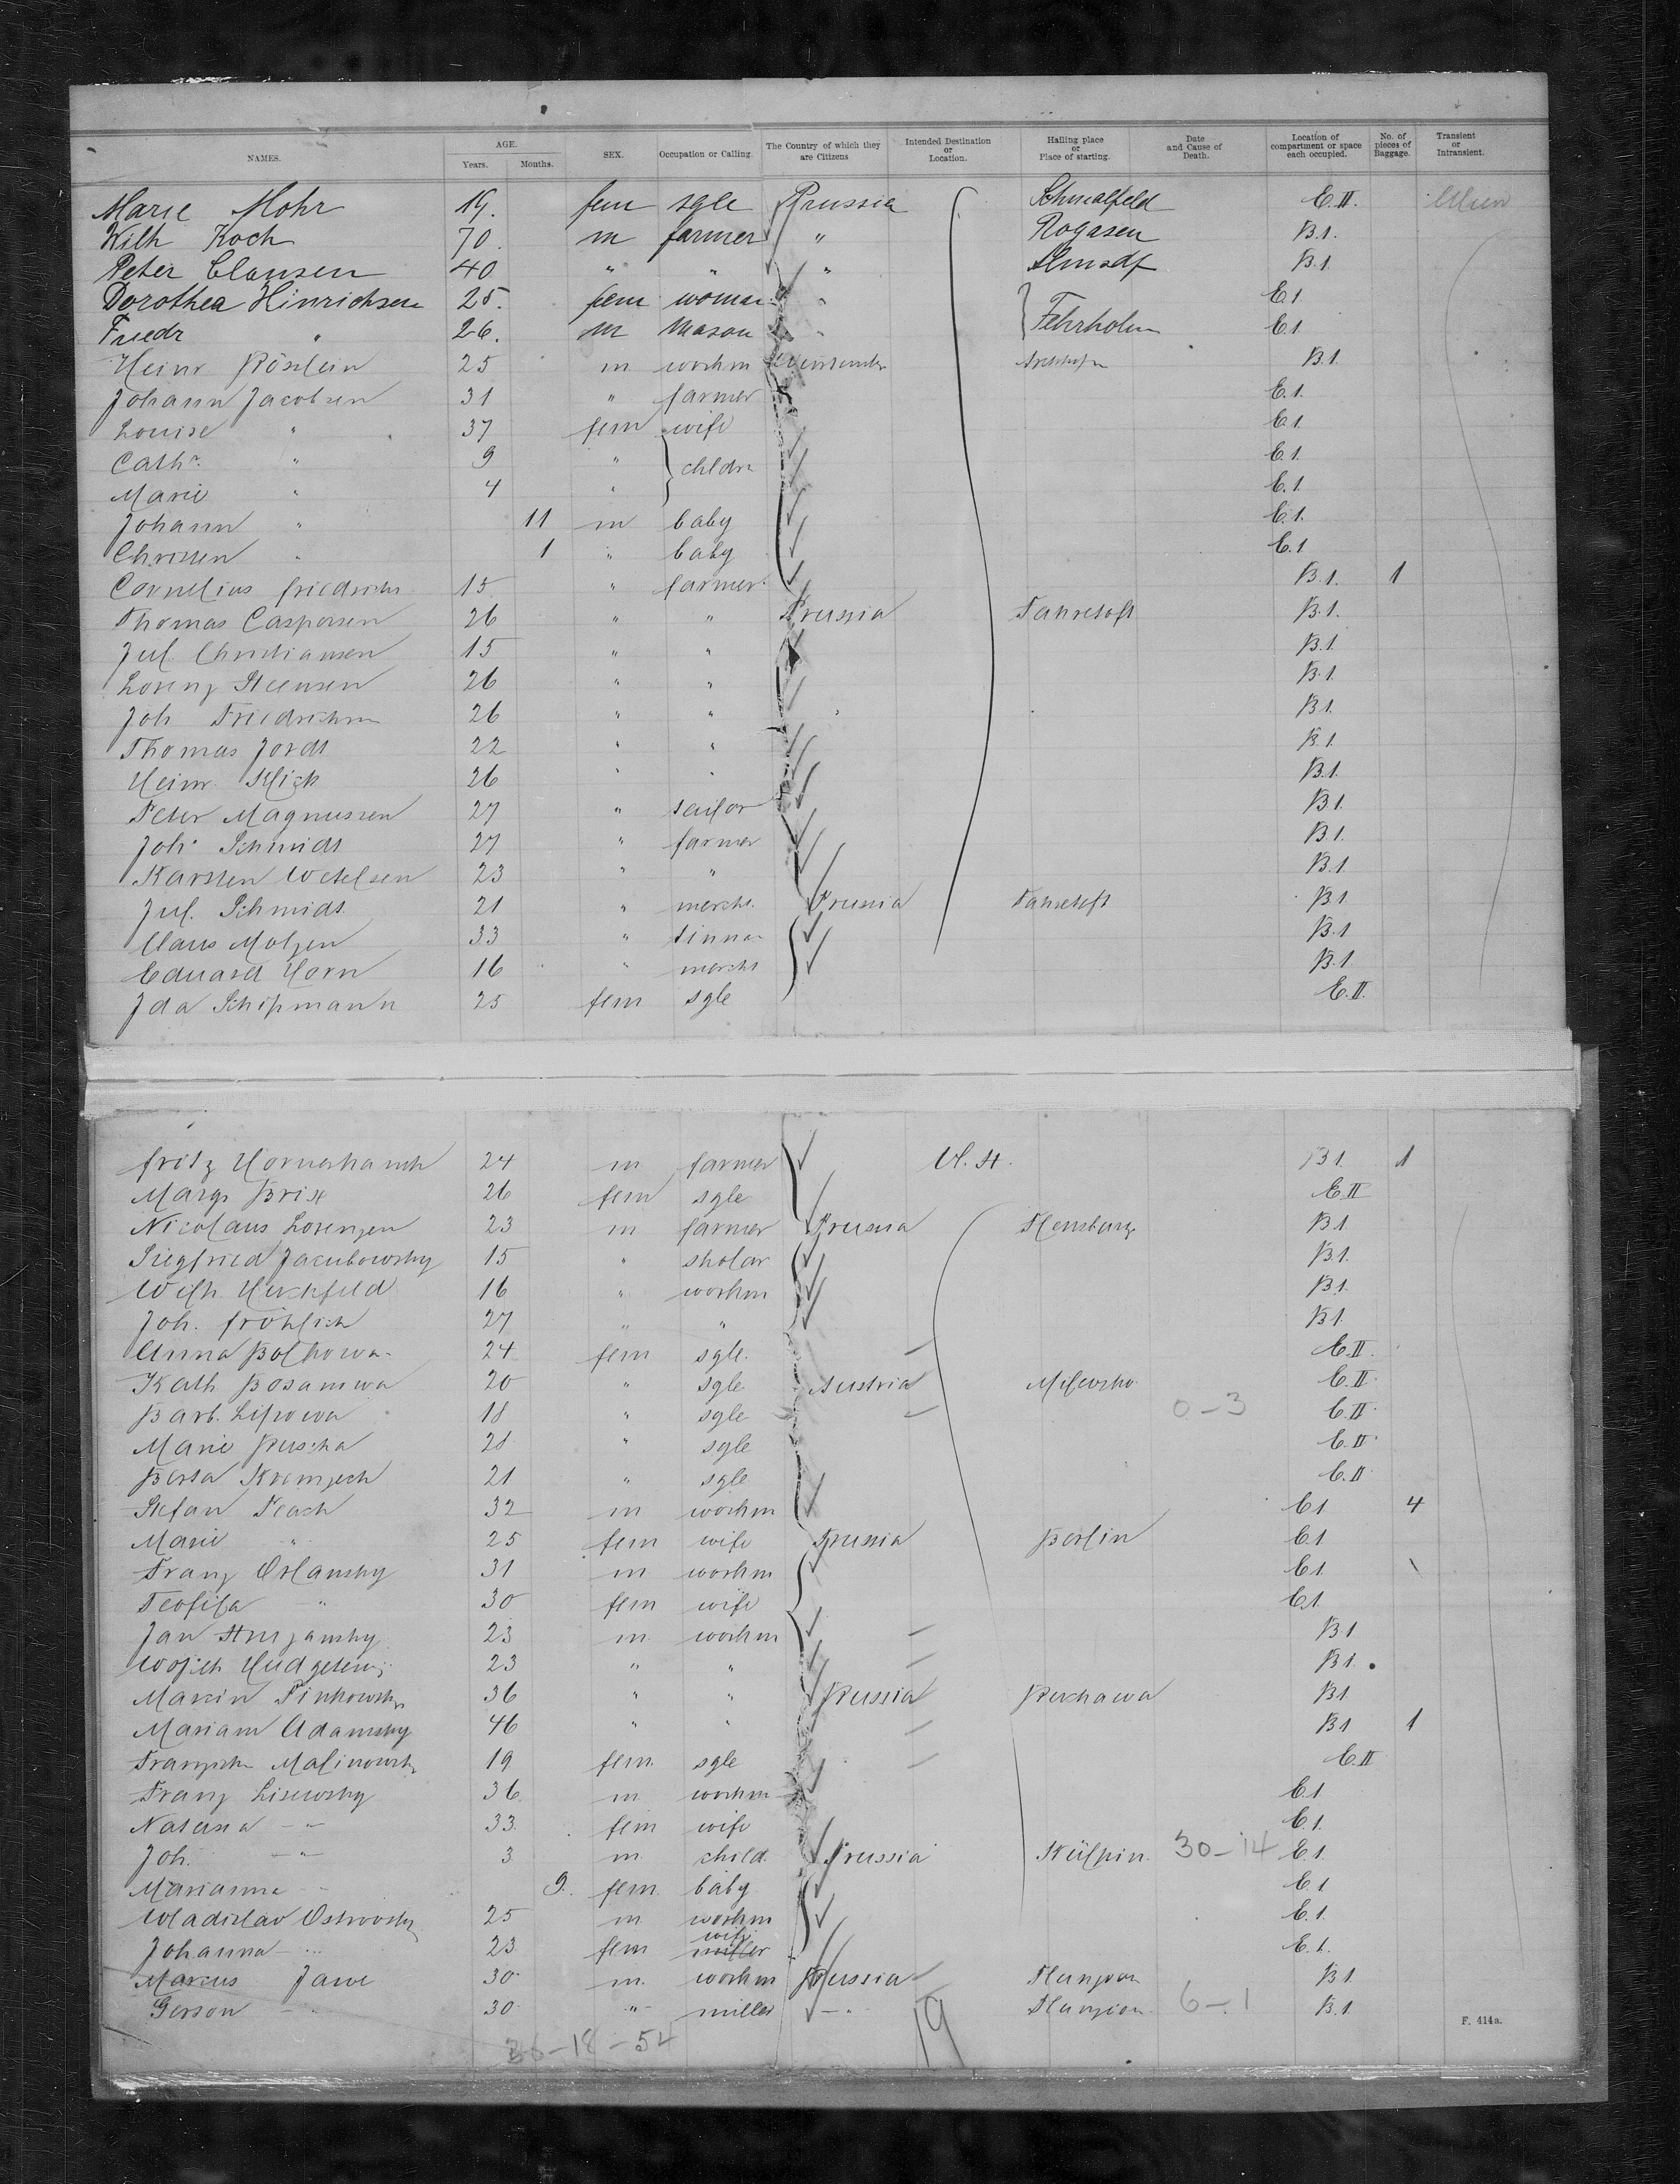 NAMES. AGE. Years. Months. SEX. Occupation or Calling. The Country of which they are Citizens Intended Destination or Location. Hailing place or Place of starting. Date and Cause of Death. Location of compartment or space each occupied. No. of pieces of Baggage. Transient or Intransient.
Marie Mohr 19. fem sgle Prussia Schmalfeld E.II.
Wilh Koch 70. m farmer " Rogasen B.1.
Peter Clausen 40 " " " B.1.
Dorothea Hinrichsen 25. fem woman " E.1
Friedr " 26. m mason " Fehrholm E.1
Heinr Röslein 25 m workm B.1.
Johann Jacobsen 31 " farmer E.1.
Louise " 37 fem wife E.1
Cathr. " 9 " childr E.1.
Marie " 4 " E.1
Johann " 11 m baby E.1.
Christen " 1 " baby E.1
Cornelius Friedrichs 15 " farmer B.1. 1
Thomas Caspersen 26 " " Prussia Fahretoft B.1.
Jul. Christiansen 15 " " B.1
Lorenz Steensen 26 " " B.1
Joh Friedrichsen 26 " " B.1.
Thomas Jordt 22 " " B.1
Heinr. 26 " " B.1.
Peter Magnussen 27 " sailor B.1.
Joh. Schmidt 27 " farmer B.1.
Karsten Wetelsen 23 " " B.1
Jul. Schmidt 21 " mercht. Prussia Fahretoft B.1
Claus Molzen 33 " tinna B.1
Eduard Horn 16 " mercht B.1
Ida Schipmann 25 fem sgle E.II.
Fritz 24 m farmer U. St. B.1. 1
Margr Brix 26 fem sgle E.II
Nicolaus Lorenzen 23 m farmer Prussia Flensburg B.1
Siegfried Jacubowsky 15 " sholar B.1.
Wilh. Hirchfeld 16 " workm B.1.
Joh. Fröhlich 27 " " B.1.
Anna Bolkowa 24 fem sgle. E.II.
Kath Bosaniwa 20 " sgle Austria E.II.
Barb. Lipowa 18 " sgle 0-3 E.II.
Marie Ruscha 21 " sgle E.II.
Berta 21 " sgle E.II.
Stefan Peach 32 m workm E.1 4
Marie " 25 fem wife Prussia Berlin E.1
Franz Orlansky 31 m workm E.1 \
Teofila " 30 fem wife E.1.
Jan 23 m workm B.1
Wojich 23 " " B.1.
Marcin Pinkowsky 36 " " Russia B.1.
Mariam Adamsky 46 " " B.1 1
Malinowsk 19 fem. sgle E.II
Franz Lisewsky 36. m workm E.1
33. fem wife E.1.
Joh. " 3 m child. Prussia Külpin 30-14 E.1.
Marianna " 9. fem. baby E.1
Wladislav Ostrovsky 25 m workm E.1.
Johanna " 23 fem wife miller E.1.
Marcus Jawe 30 m. workm Russia B.1
Gerson " 30 " miller " 6-1 B.1
36-18-54 19
F. 414a.